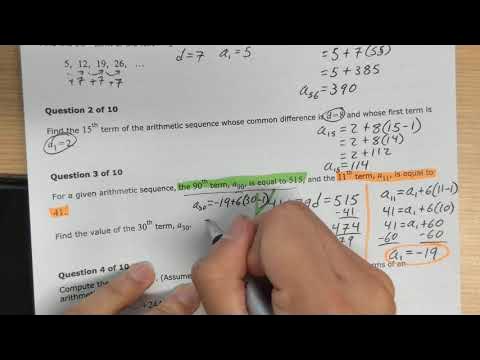 5, 12, 19, 26, ...
+7 +7 +7
d=7 a₁=5
= 5+7(55)
= 5+385
a₃₆=390
Question 2 of 10
Find the 15th term of the arithmetic sequence whose common difference is d=8 and whose first term is
a₁=2
a₁₅=2+8(15-1)
=2+8(14)
=2+112
a₁₅=114
Question 3 of 10
For a given arithmetic sequence, the 90th term, a₉₀, is equal to 515, and the 11th term, a₁₁, is equal to
41.
a₃₀=-19+6(30-1)
d=515
-41
474
79
Find the value of the 30th term, a₃₀.
a₁₁=a₁+6(11-1)
41=a₁+60
-60 -60
a₁=-19
Question 4 of 10
Compute the
(Assume
arithmetic
terms of an